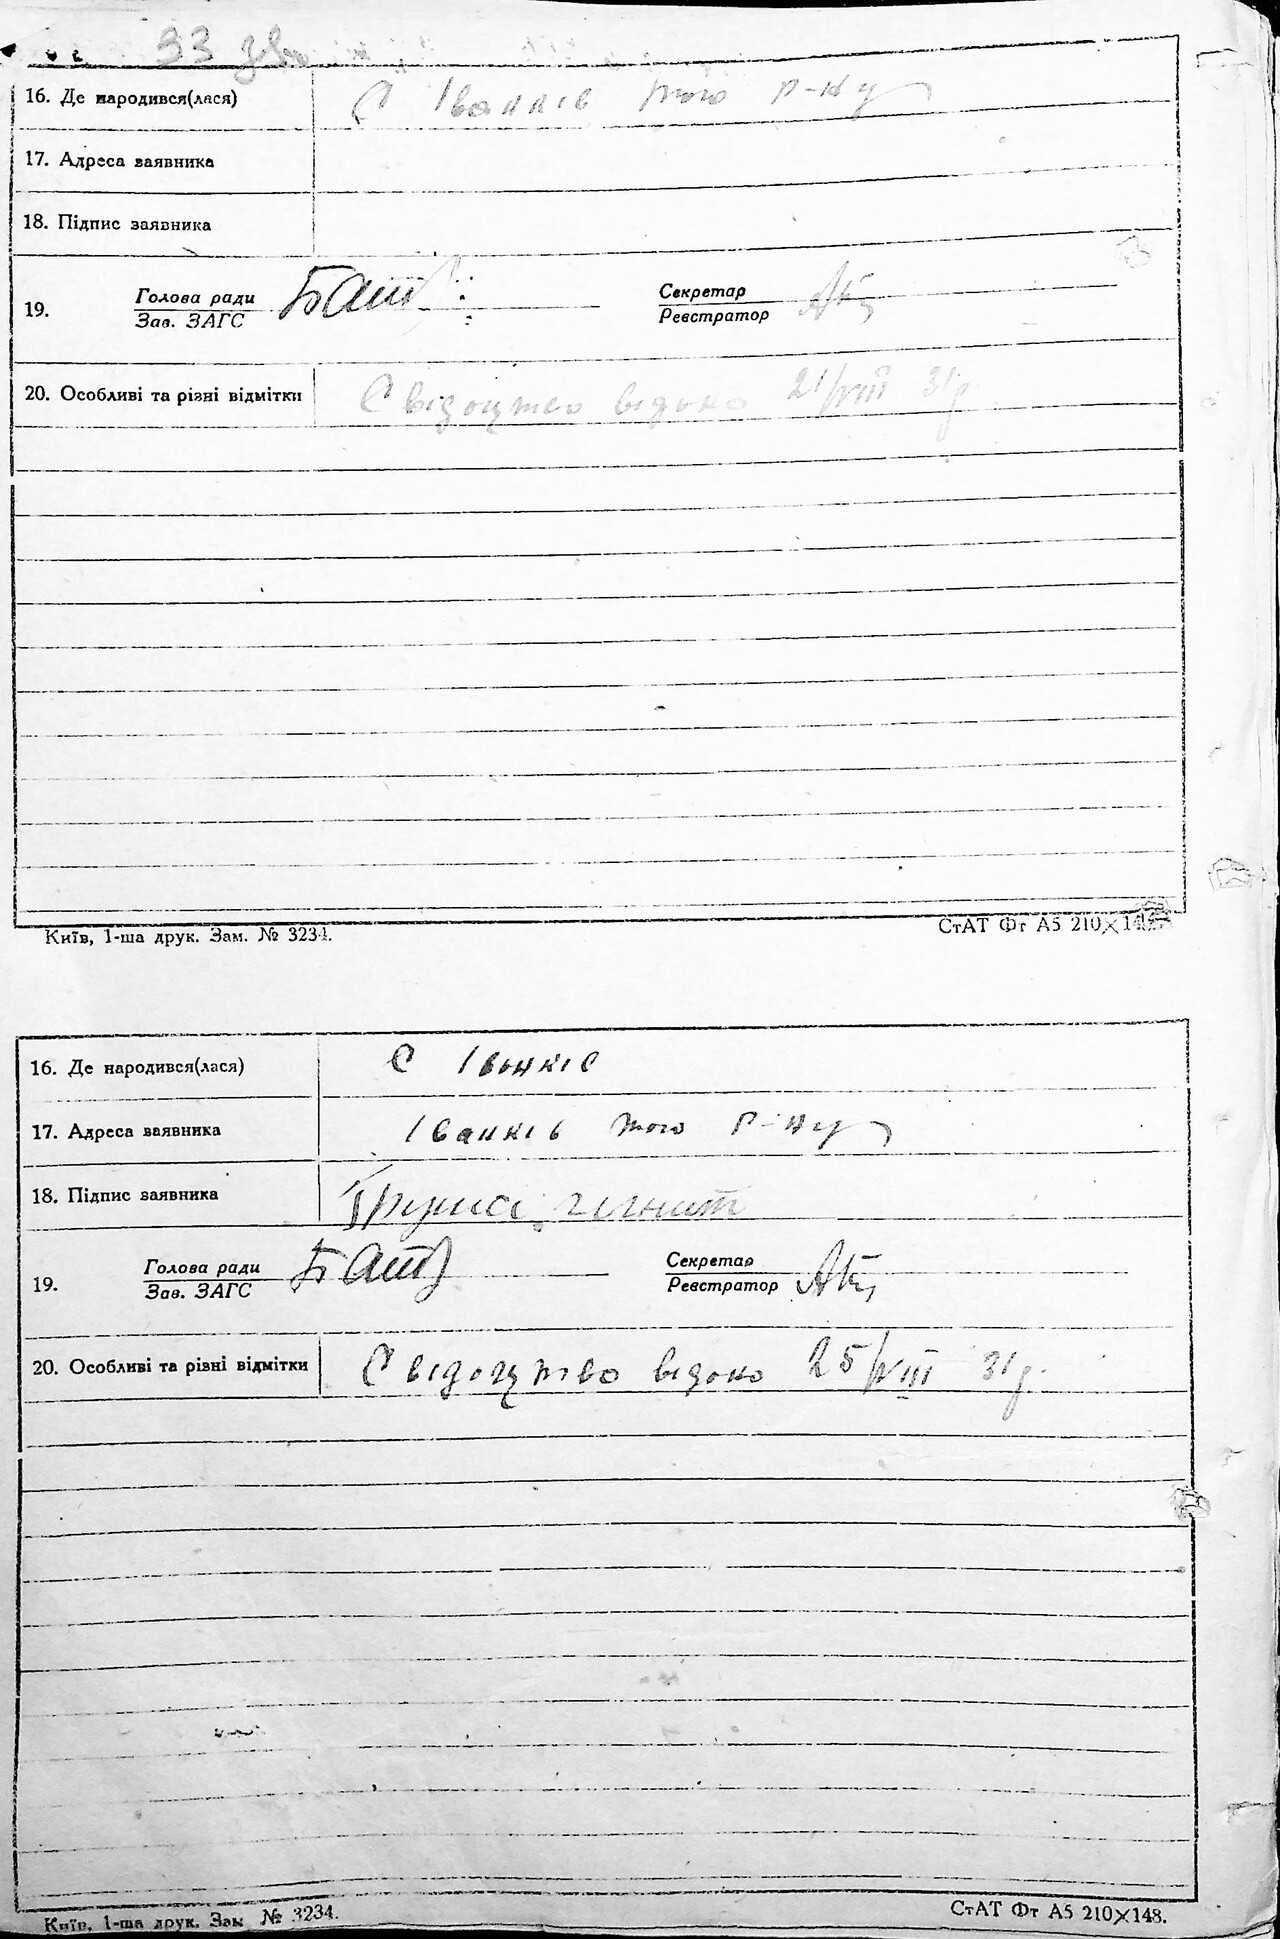 33
16. Де народився(лася) С Іванків того р-ну
17. Адреса заявника
18. Підпис заявника
19. Голова ради
Зав. ЗАГС
Секретар
Реєстратор
20. Особливі та різні відмітки Свідоцтво відоно 21/VIII 31р.
Київ, 1-ша друк. Зам. № 3234.
СтАТ Фт А5 210×148.
16. Де народився(лася) С Іванків
17. Адреса заявника Іванків того р-ну
18. Підпис заявника
19. Голова ради
Зав. ЗАГС
Секретар
Реєстратор
20. Особливі та різні відмітки Свідоцтво відоно 25/VIII 31р.
Київ, 1-ша друк. Зам № 3234.
СтАТ Фт А5 210×148.